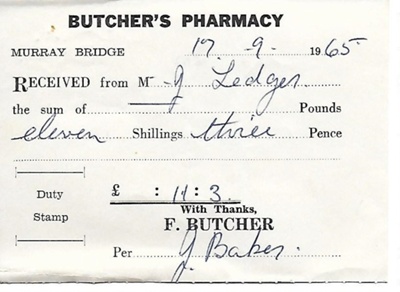 BUTCHER'S PHARMACY
MURRAY BRIDGE 17. 9. 1965
RECEIVED from Mr J Ledger
the sum of — Pounds
eleven Shillings three Pence
Duty
Stamp
£ : 11 : 3.
With Thanks,
F. BUTCHER
Per J. Baker.